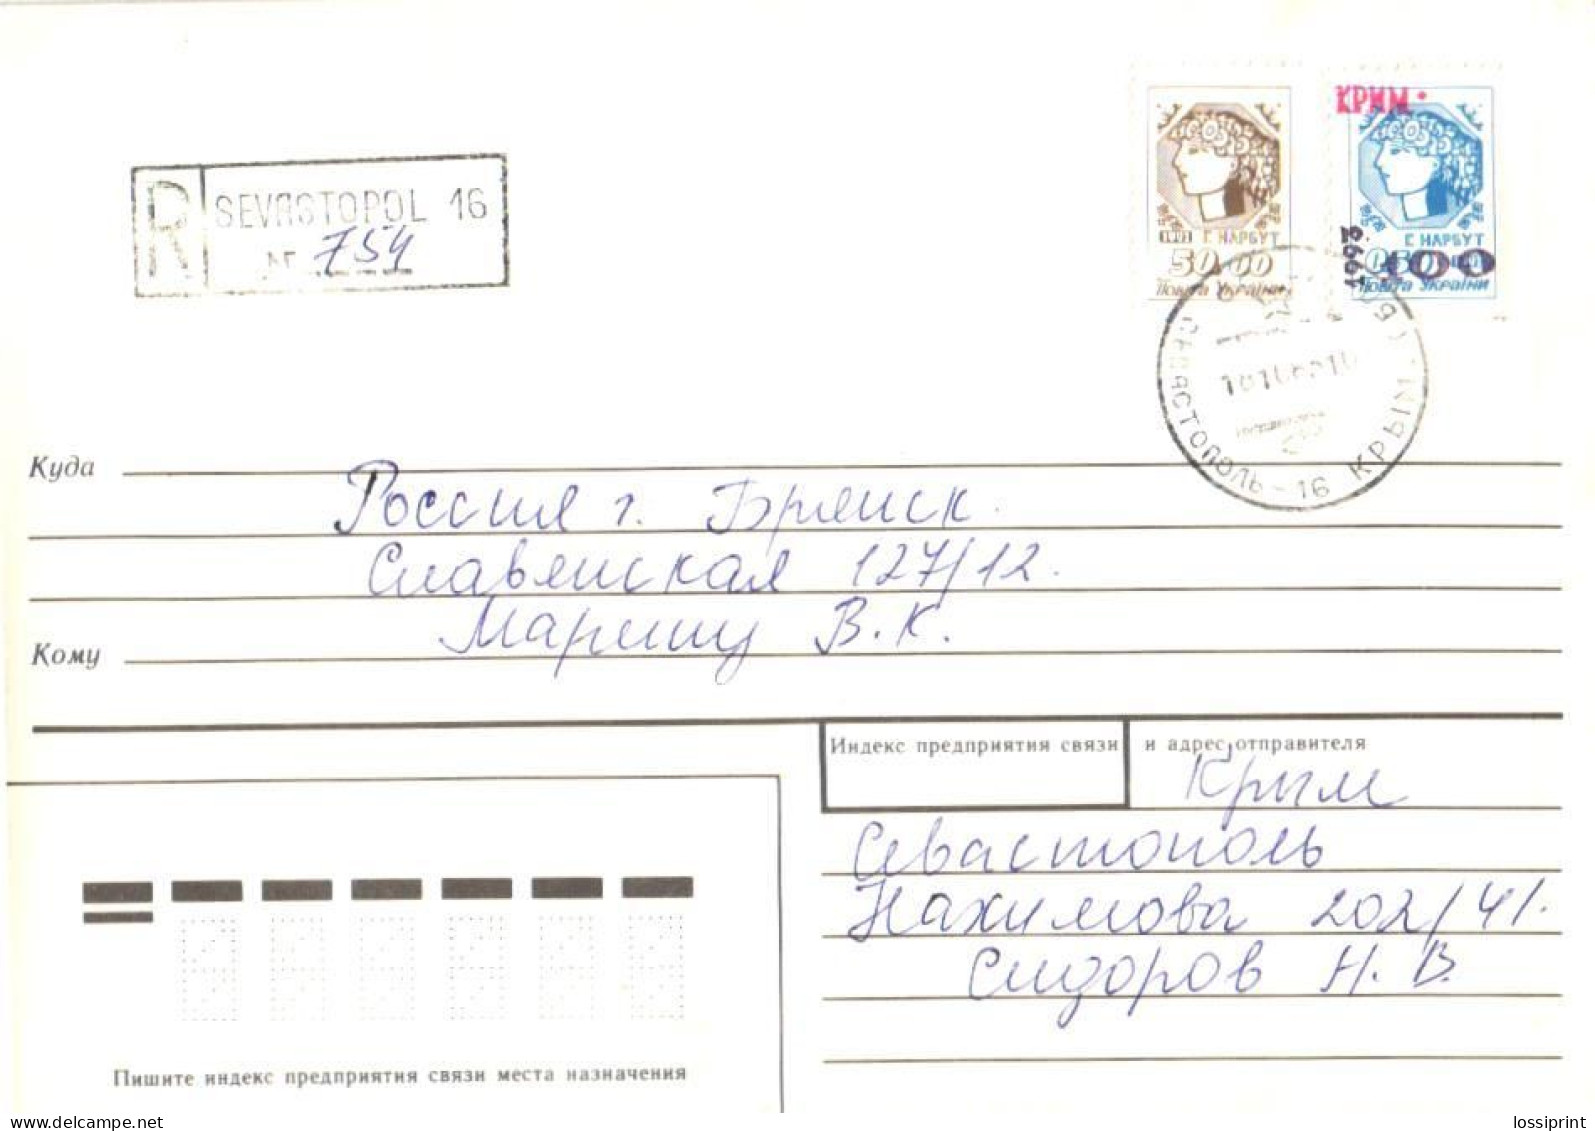 КРИМ
R SEVASTOPOL 16
№ 754
1992 Г. НАРБУТ
50.00
Пошта України
Г. НАРБУТ
1993
0.50 100
Пошта України
СЕВАСТОПОЛЬ - 16 КРЫМ
Куда
Россия г. Брянск.
Славянская 127/12.
Маршину В.К.
Кому
Индекс предприятия связи и адрес отправителя
Крым
Севастополь
Нахимова 202/41.
Сидоров Н.В.
Пишите индекс предприятия связи места назначения
www.delcampe.net
lossiprint